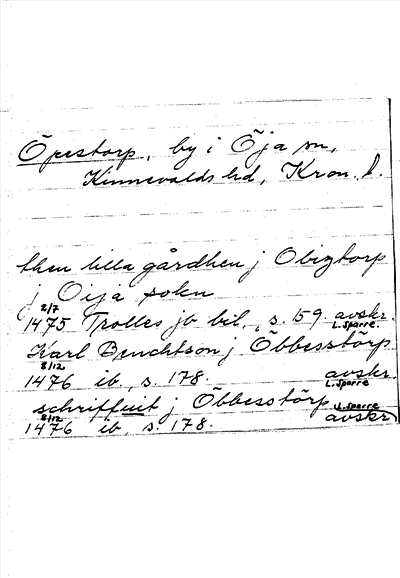 Öpestorp, by i Öja sn,
Kinnevalds hd, Kron. l.
then lilla gårdhen j Obiztorp
j Oija sokn
2/7
1475 Trolles jb bil., s. 159. avskr. L. Sparre.
Karl Benchtson j Öbbesstörp
8/12
1476 ib., s. 178. avskr. L. Sparre
schriffuit j Öbbesstörp
8/12
1476 ib. s. 178. L. Sparre avskr.